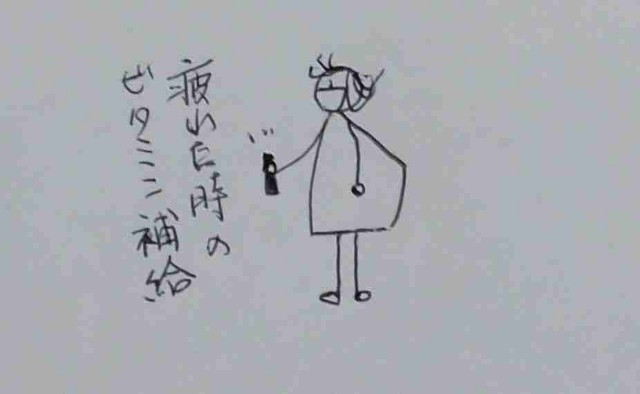 疲れた時の
ビタミン補給